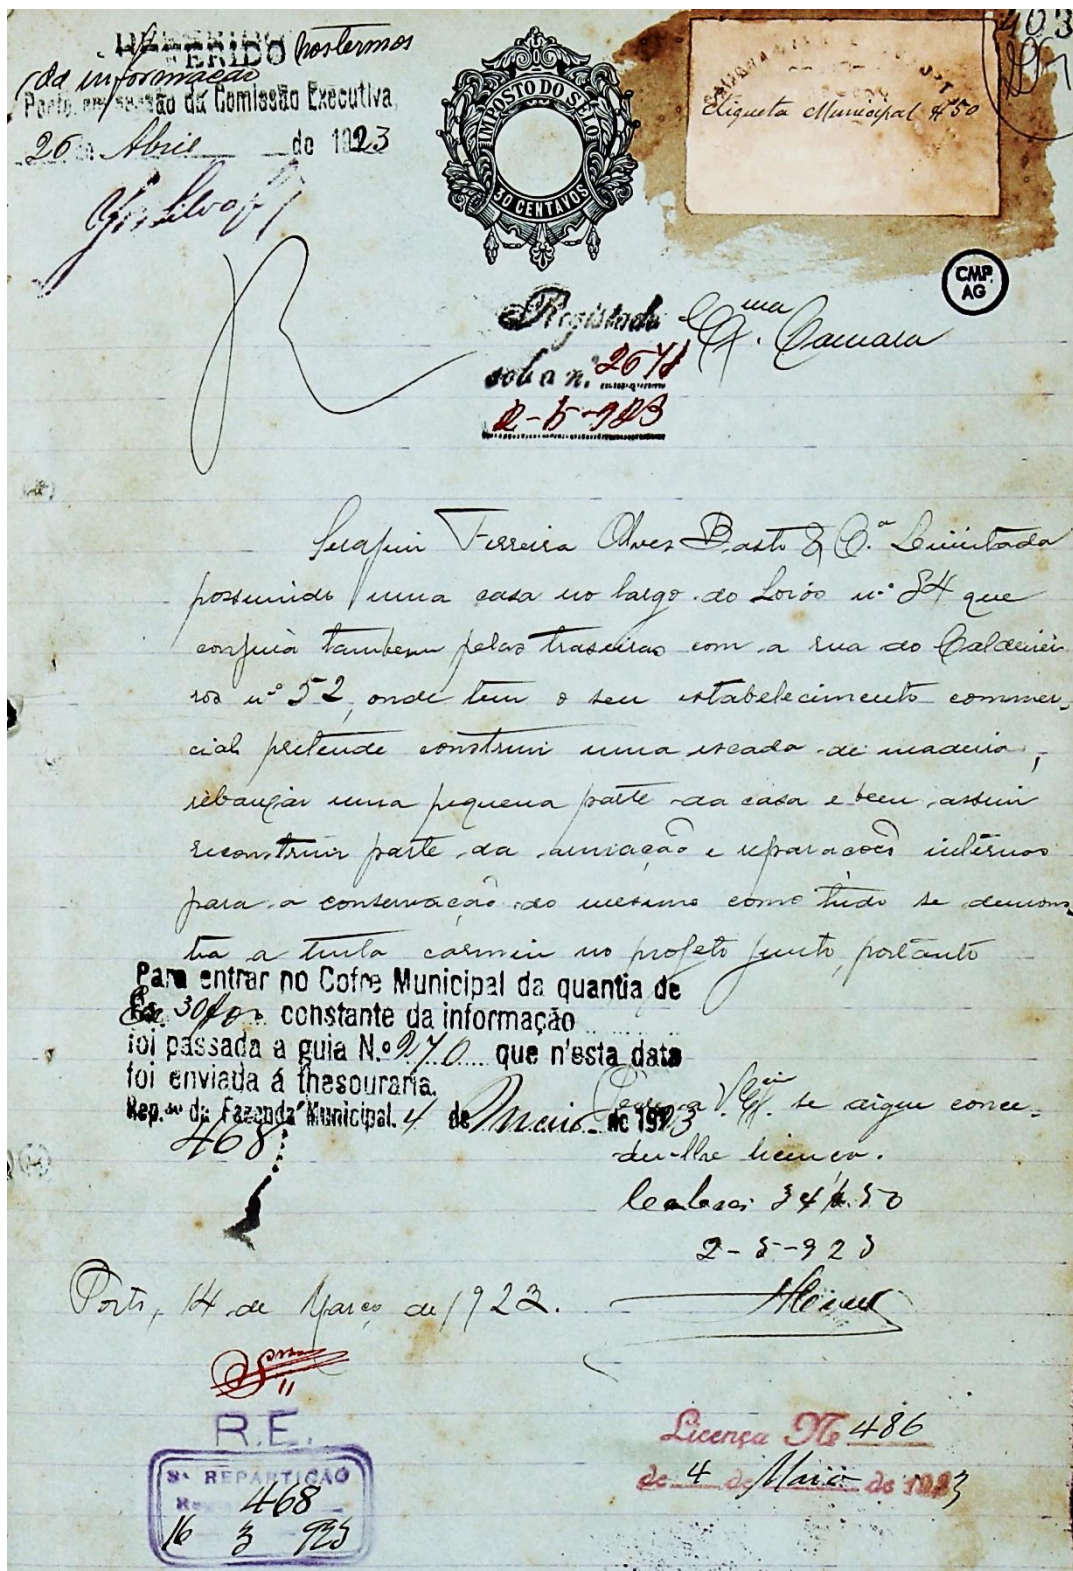 DEFERIDO nos termos
da informação
Porto, em sessão da Comissão Executiva,
26 de Abril de 1923
IMPOSTO DO SELO
30 CENTAVOS
Etiqueta Municipal $50
403
CMP
AG
Registado
sob o n.º 2678
2-5-923
Exma Camara
Serafim Ferreira Alves Basto & C.ª Limitada
possuindo uma casa no largo do Loios nº 84 que
confina tambem pelas traseiras com a rua do Caldeirei
ros nº 52, onde tem o seu estabelecimento commer-
cial pretende construir uma escada de madeira,
rebaixar uma pequena parte da casa e bem assim
reconstruir parte da armação e reparações internos
para a conservação do mesmo como tudo se demons-
tra a tinta carmim no projeto junto, portanto
Para entrar no Cofre Municipal da quantia de
Esc. 30$00 constante da informação
foi passada a guia N.º 270 que n'esta data
foi enviada á thesouraria.
Rep.ão da Fazenda Municipal. 4 de Maio de 1923
468
V. Ex. se digne conce-
der-lhe licença.
34$50
2-5-923
Porto, 14 de Março de 1923.
R.E.
3ª REPARTIÇÃO
468
16 3 923
Licença Nº 486
de 4 de Maio de 1923